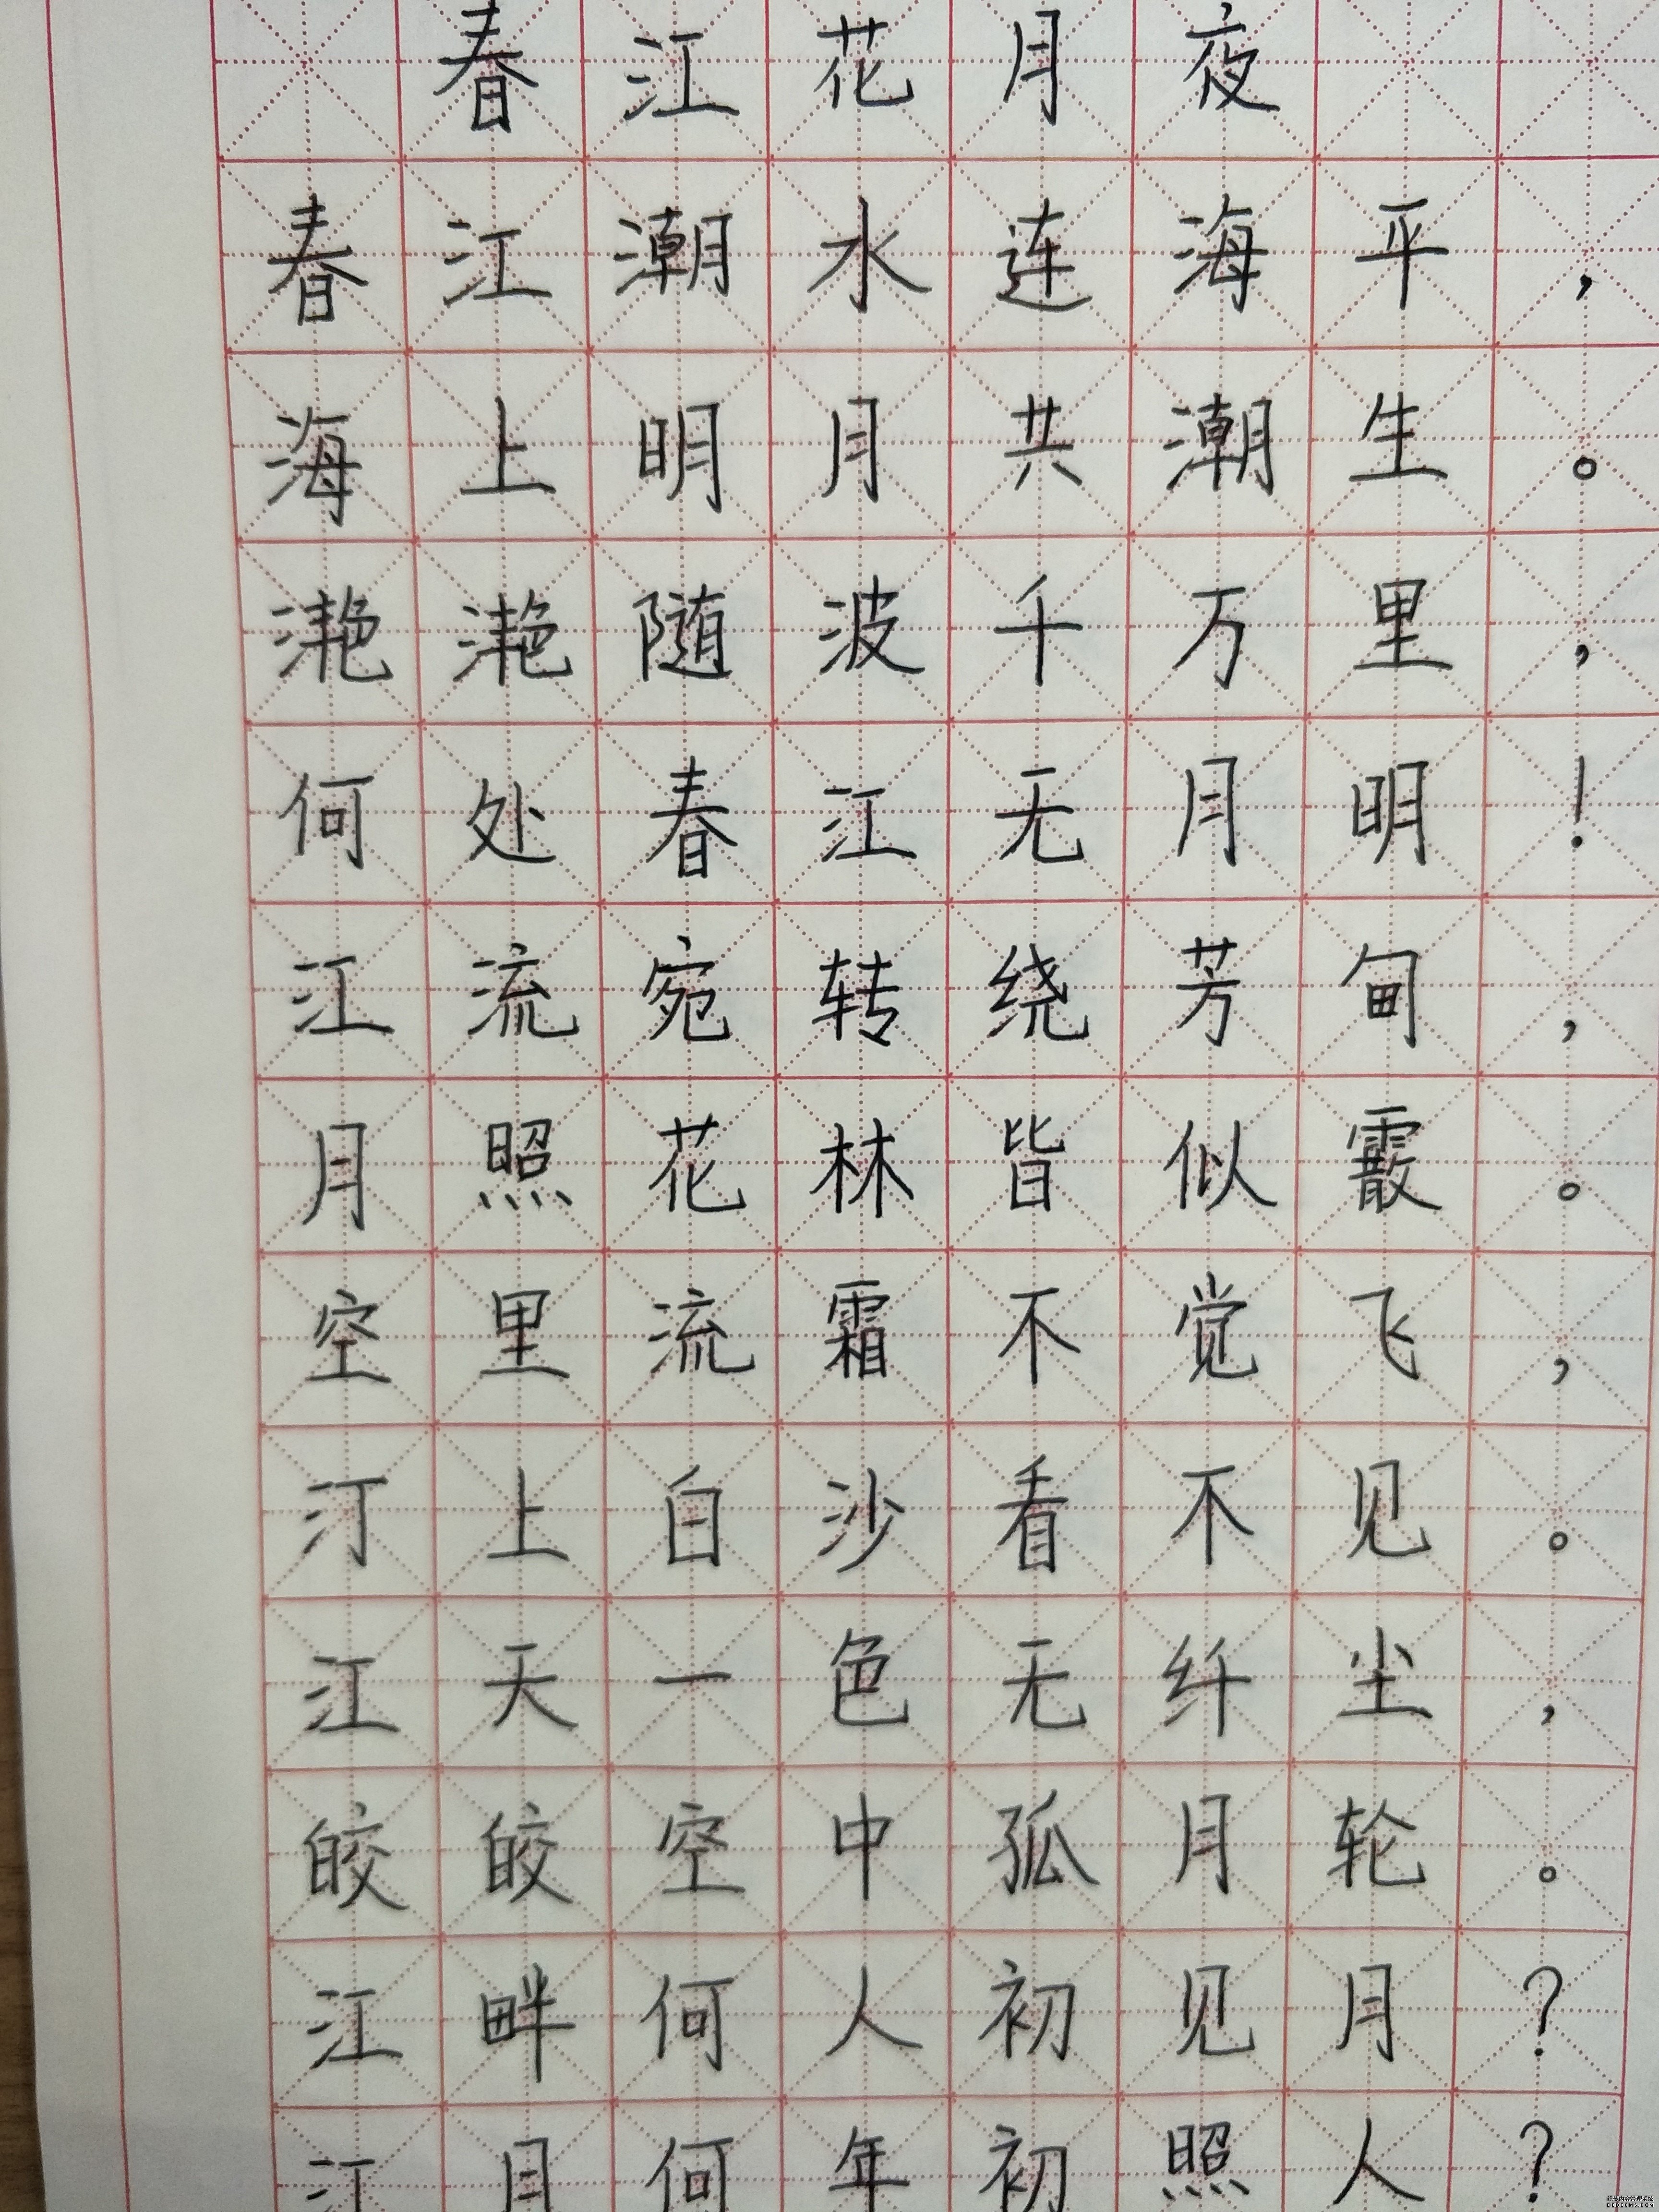 春江花月夜
春江潮水连海平，
海上明月共潮生。
滟滟随波千万里，
何处春江无月明！
江流宛转绕芳甸，
月照花林皆似霰。
空里流霜不觉飞，
汀上白沙看不见。
江天一色无纤尘，
皎皎空中孤月轮。
江畔何人初见月？
江月何年初照人？